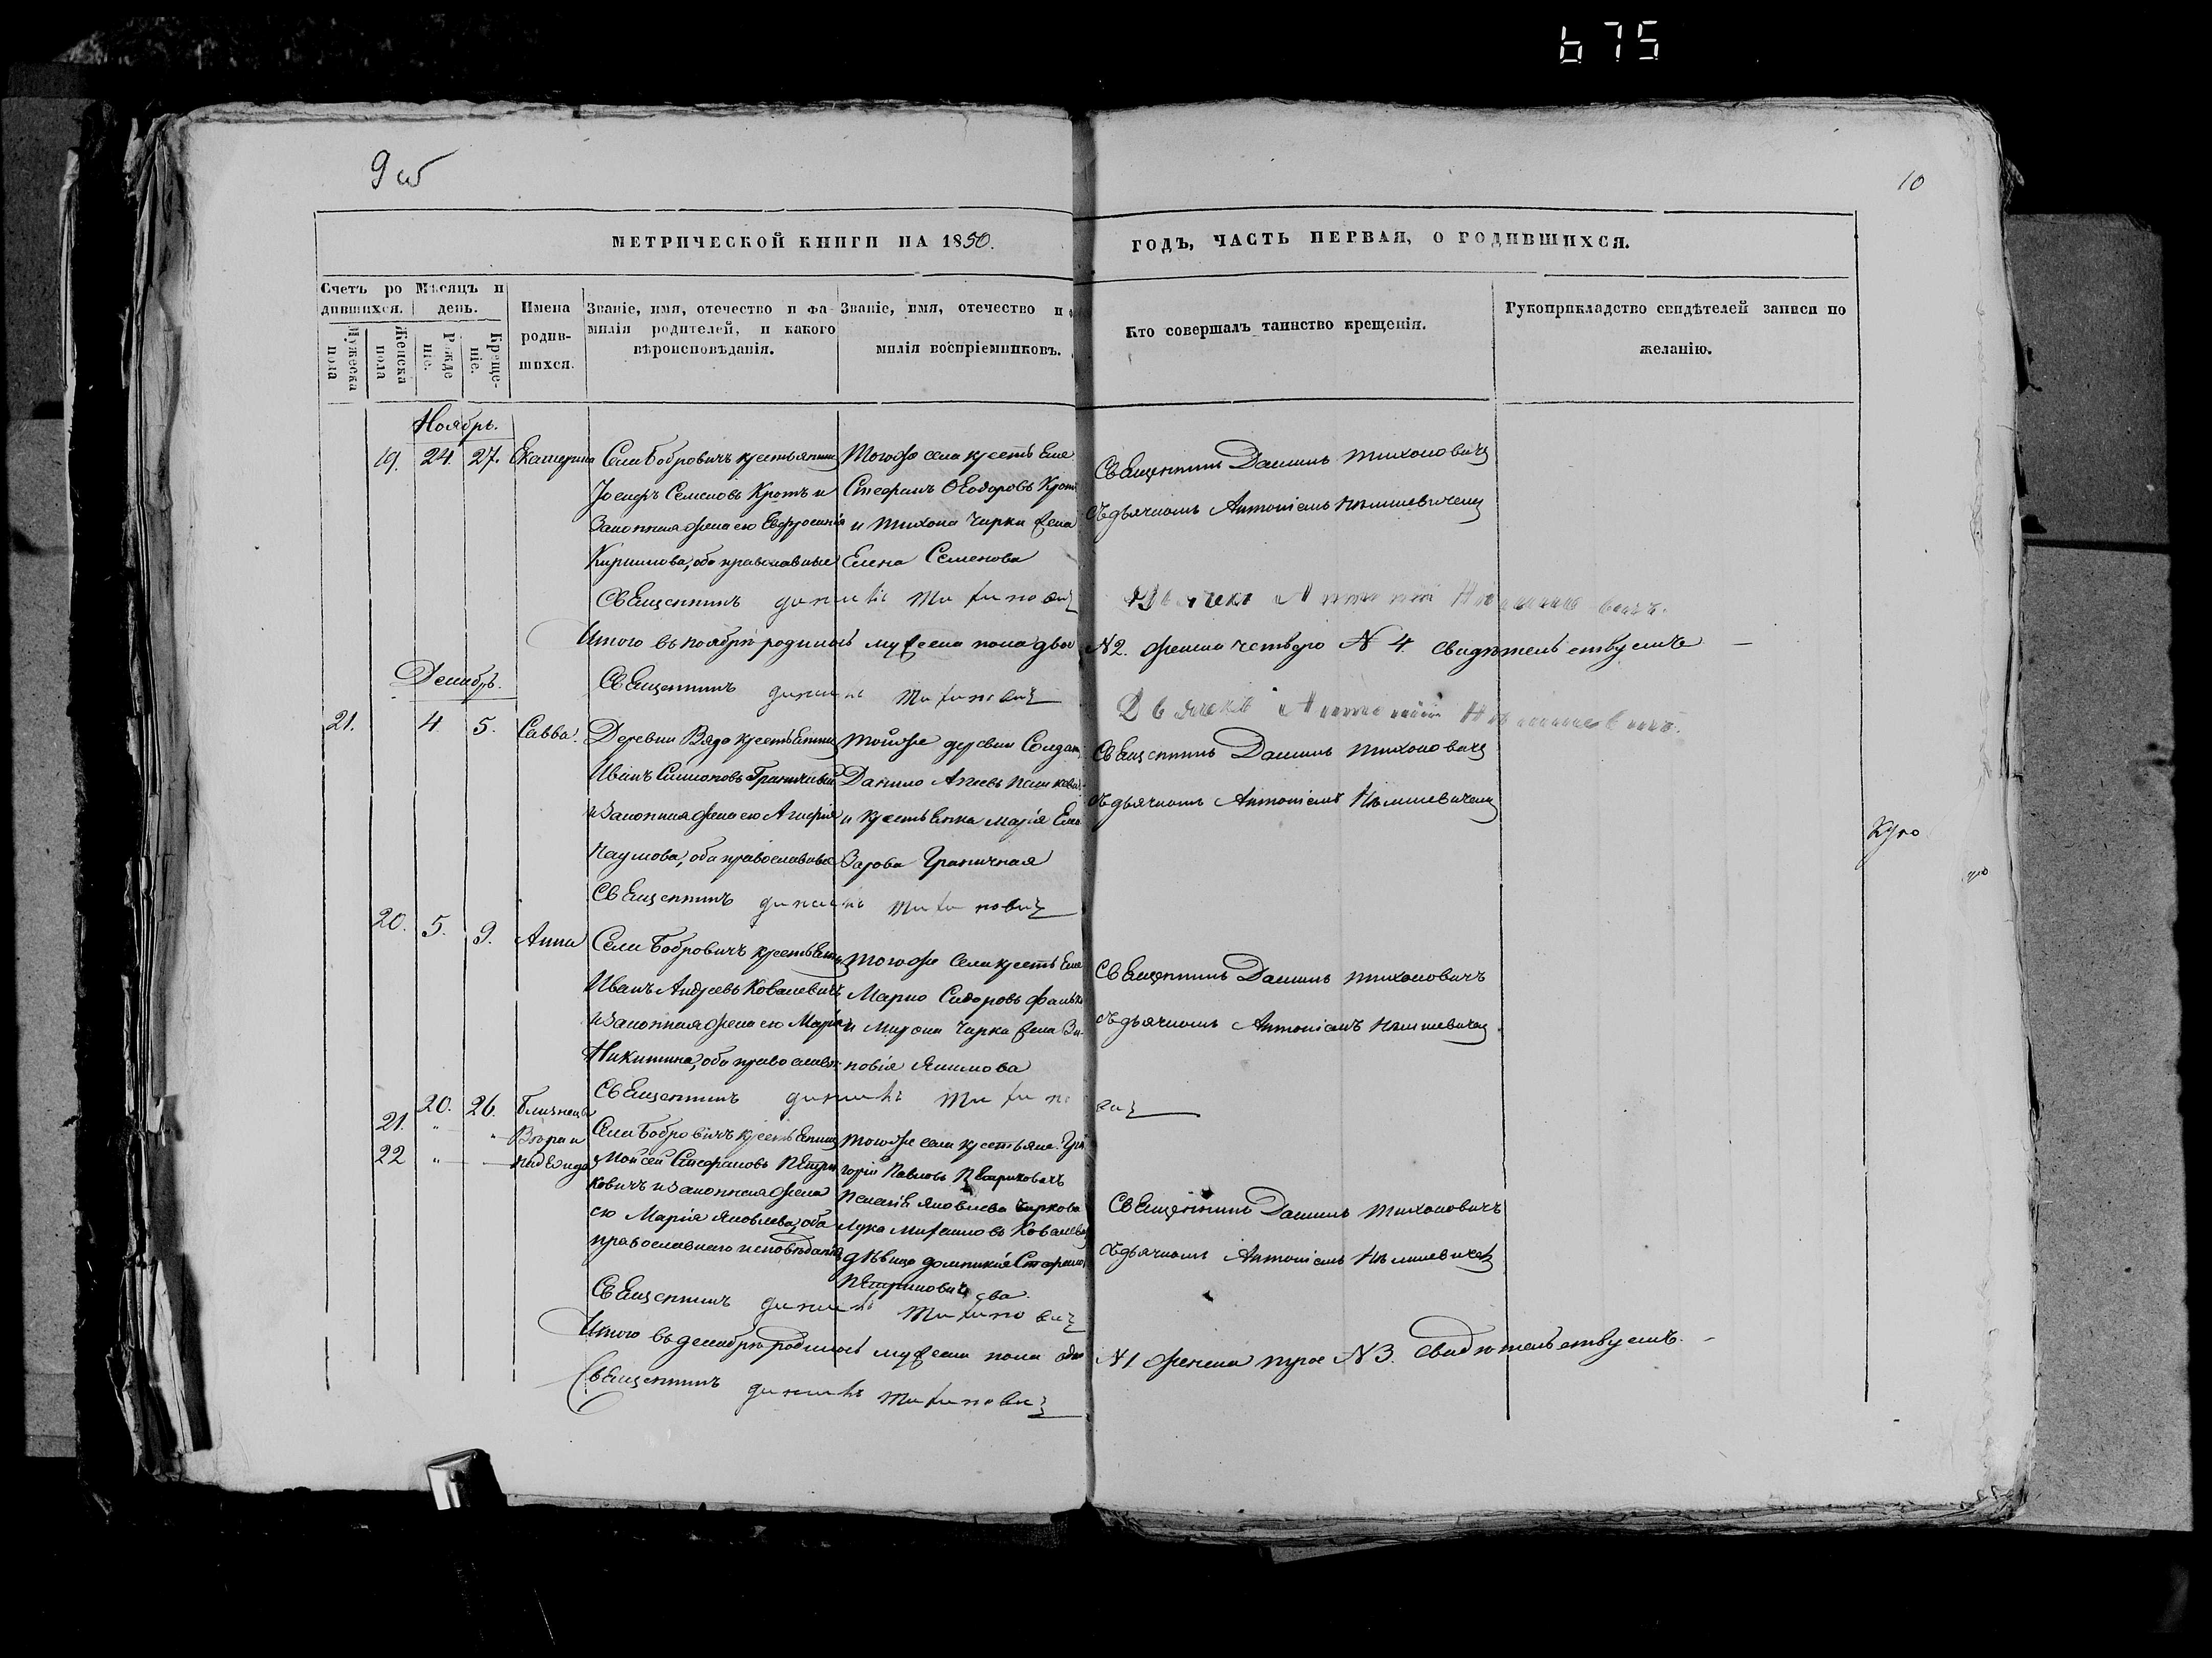 675
9 об
10
МЕТРИЧЕСКОЙ КНИГИ НА 1850.
ГОДЪ, ЧАСТЬ ПЕРВАЯ, О РОДИВШИХСЯ.
Счетъ родившихся.
Мужеска пола
Женска пола
Мѣсяцъ и день.
Рожденіе.
Крещеніе.
Имена родившихся.
Званіе, имя, отечество и фамилія родителей, и какого вѣроисповѣданія.
Званіе, имя, отечество и
милія воспріемниковъ.
Кто совершалъ таинство крещенія.
Рукоприкладство свидѣтелей записи по желанію.
Ноябрь.
19. 24. 27. Екатерина
Села Бобровичъ крестьянинъ
Іосифъ Семеновъ Кротъ и
Законная жена его Евфросинія
Кирилова, оба православные
Тогоже села крестьяне
Стефанъ Ѳеодоровъ Кротъ
и Тихона Чирки жена
Елена Семенова
Священникъ Даниилъ Тихоновичъ
съ дьячкомъ Антоніемъ
Священникъ Даниилъ Тихоновичъ
Дьячекъ Антоній
Итого въ ноябрѣ родилось мужеска пола двое N2. женска четверо N 4. свидѣтельствуемъ
Священникъ Даниилъ Тихоновичъ
Дьячекъ Антоній
Декабрь.
21. 4 5. Савва.
Деревни Вядо крестьянинъ
Иванъ Симоновъ Граничный
и Законная жена его
Наумова, оба православные
Тойже деревни Солдатъ
Данило
и крестьянка Марія
Зарова Граничная
Священникъ Даниилъ Тихоновичъ
съ дьячкомъ Антоніемъ
Кро
Священникъ Даниилъ Тихоновичъ
20. 5. 9. Анна
Села Бобровичъ крестьянинъ
Иванъ Андреевъ Ковалевичъ
и Законная жена его Марія
Никитина, оба православн:
Тогоже Села крестьяне
Марко Сидоровъ
и Мирона Чирка жена Зи-
новія Якимова
Священникъ Даниилъ Тихоновичъ
съ дьячкомъ Антоніемъ
Священникъ Даниилъ Тихоновичъ
20. 26. Близнецы
21. " "
22 "
Села Бобровичъ крестьянинъ
Моисей Стефановъ Петри
ковичъ и законная жена
его Марія Яковлева, оба
православнаго исповѣданія
Тогоже села крестьяне. Гри
горій Павловъ Петриковичъ
Пелагія Яковлева Чиркова
Лука Михаиловъ Ковалевичъ
дѣвица Домникія Стефано
Петриковичева.
Священникъ Даниилъ Тихоновичъ
съ дьячкомъ Антоніемъ
Священникъ Даниилъ Тихоновичъ
Итого въ декабрѣ родилось мужеска пола одно N1 женска трое N3. свидѣтельствуемъ.
Священникъ Даниилъ Тихоновичъ